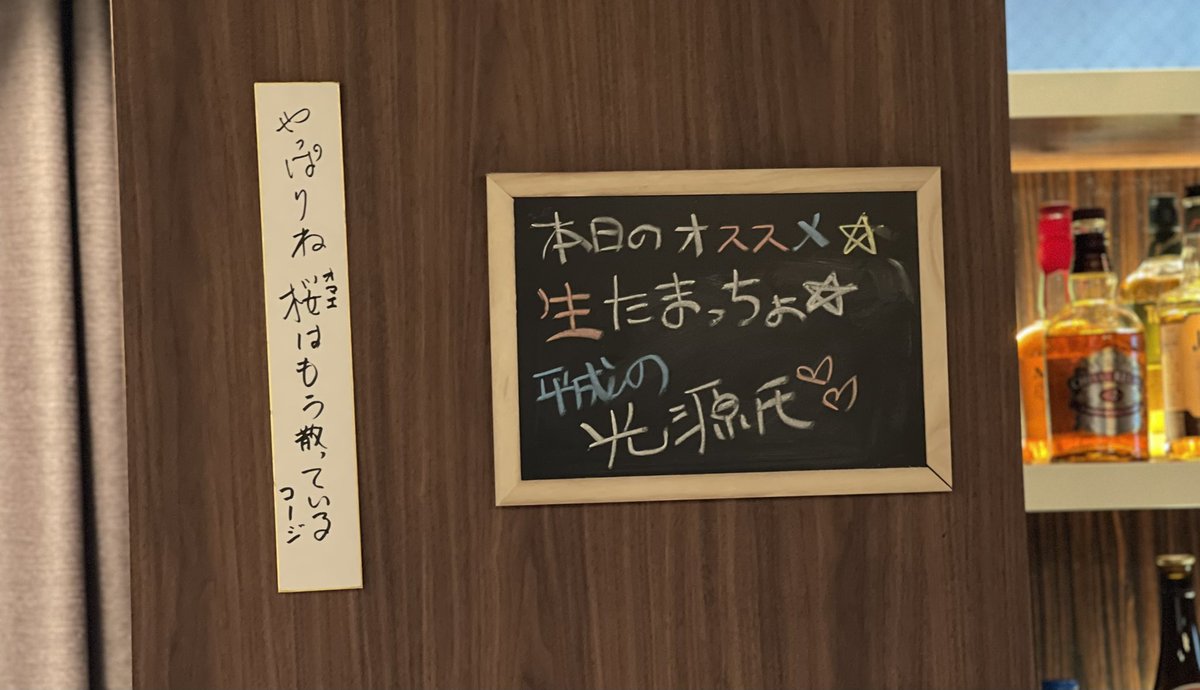 やっぱりね桜はもう散っている
オマエ
コージ
本日のオススメ☆
生たまっちょ☆
平成の
光源氏♡♡